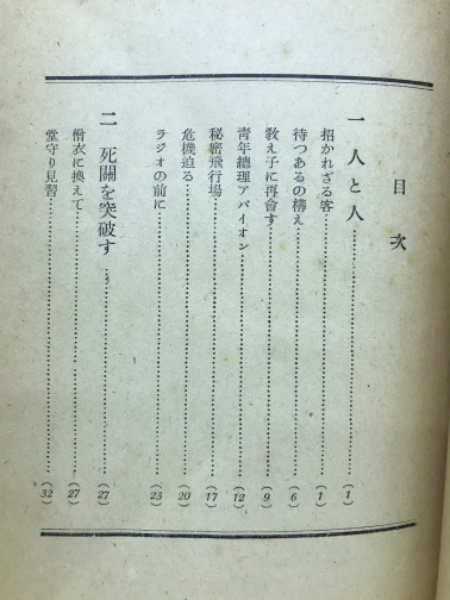 目次
一 人と人……(1)
招かれざる客……(1)
待つあるの構え……(6)
敎え子に再會す……(9)
靑年總理アパイオン……(12)
秘密飛行場……(17)
危機迫る……(20)
ラジオの前に……(23)
二 死關を突破す……(27)
僧衣に換えて……(27)
堂守り見習……(32)